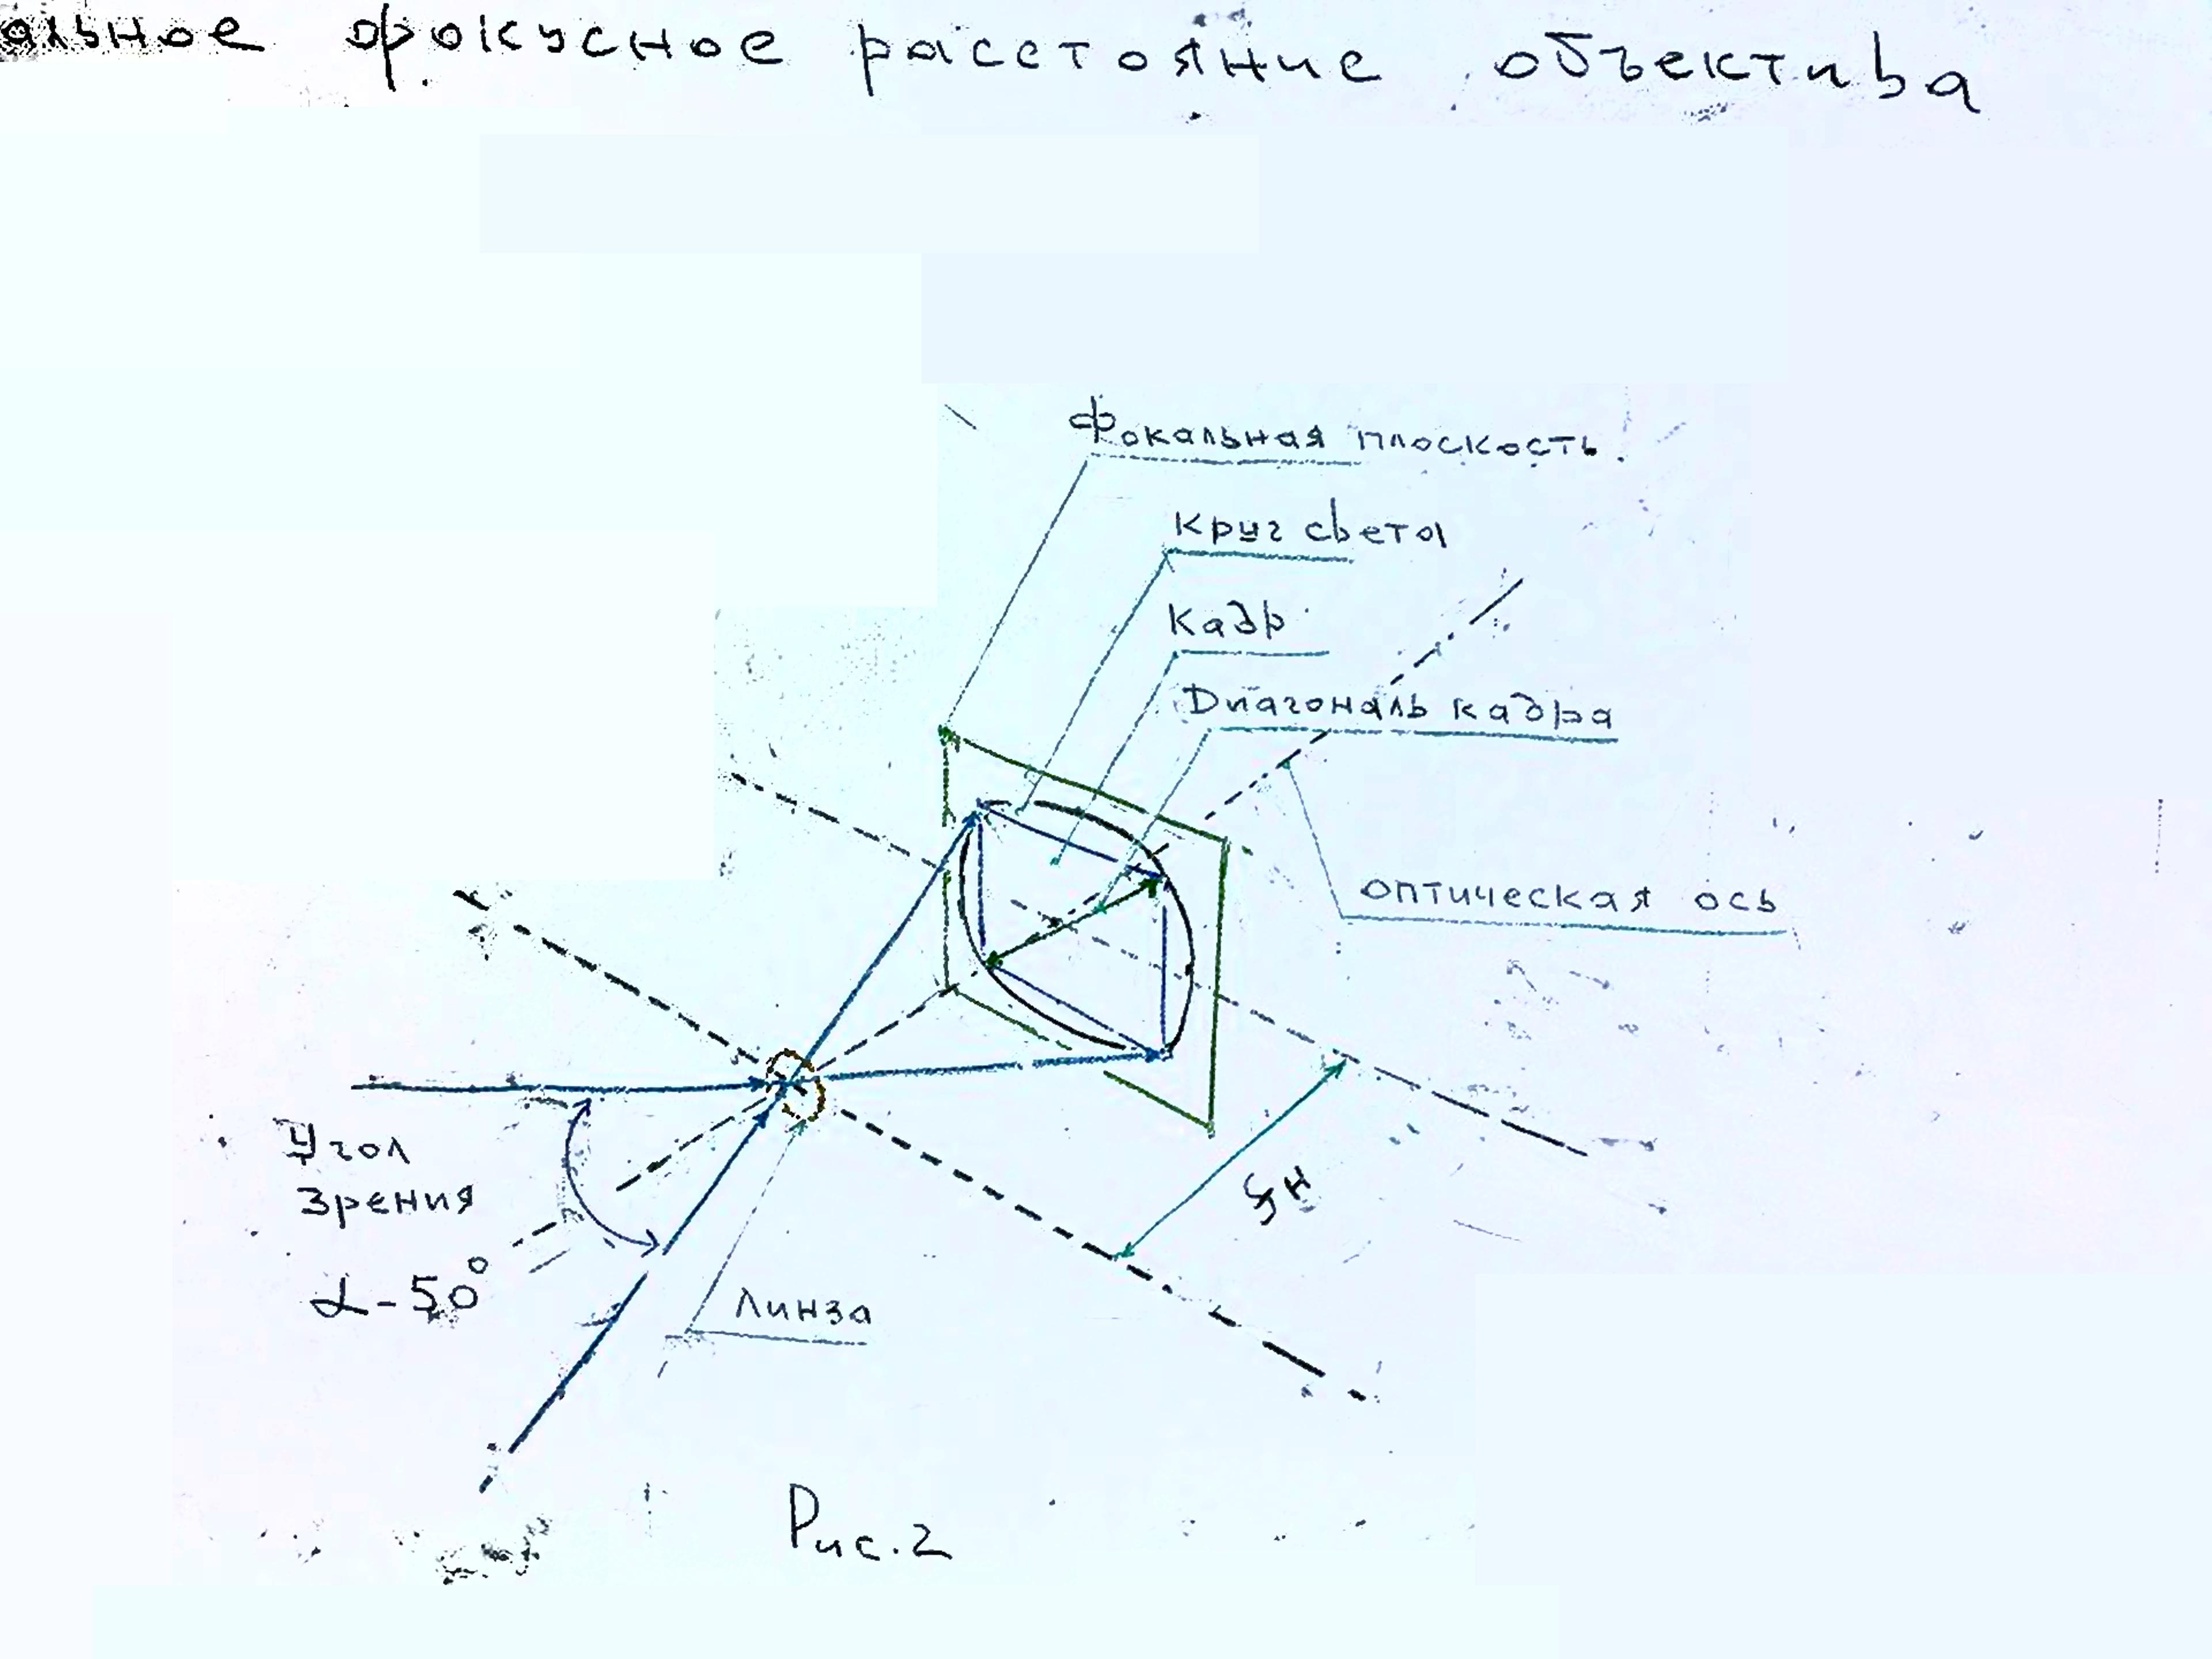 альное фокусное расстояние объектива
Фокальная плоскость
Круг света
Кадр
Диагональ кадра
оптическая ось
Угол
зрения
α-50°
Линза
Рис.2